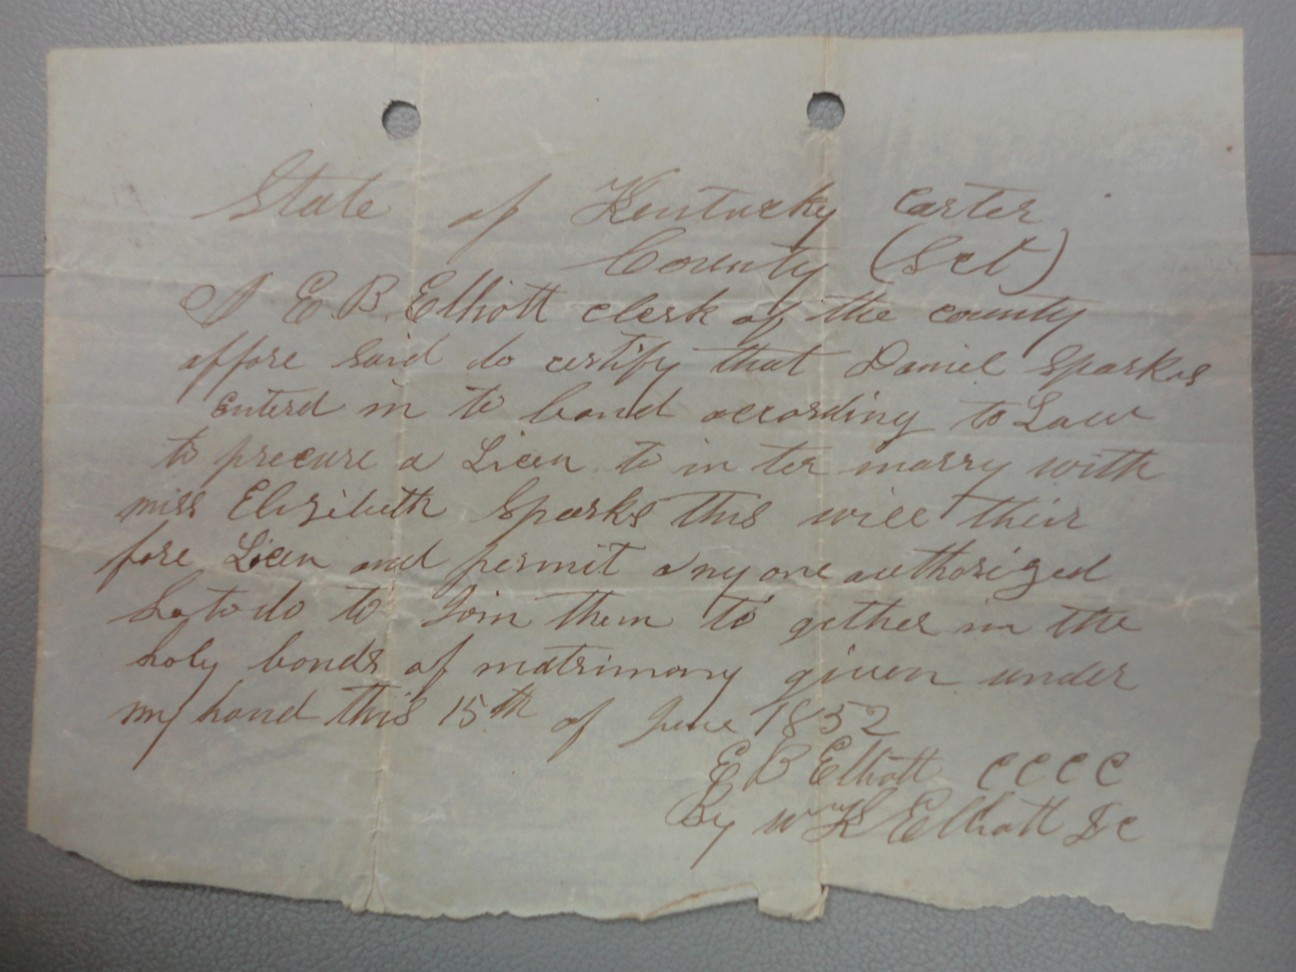 State of Kentucky Carter
County (Sct)
I E. B. Elliott clerk of the county
affore said do certify that Daniel Sparkes
enterd in to bond according to Law
to precure a Licen to in ter marry with
miss Elizibeth Sparks this will thier
fore Licen and permit any one authorized
So to do to Join them to gether in the
holy bonds of matrimony given under
my hand this 15th of June 1852
E B Elliott C C C C
By W K Elliott DC